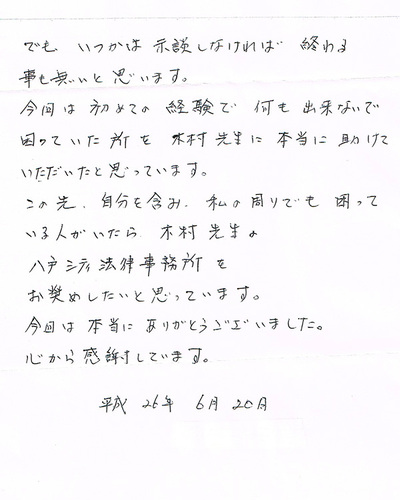 でも いつかは 示談しなければ 終わる
事も無いと思います。
今回は 初めての 経験で 何も 出来ないで
困っていた所を 木村先生に 本当に 助けて
いただいたと思っています。
この先、自分を含み、私の周りでも 困って
いる人がいたら 木村先生の
八戸シティ法律事務所を
お奨めしたいと思っています。
今回は 本当に ありがとうございました。
心から感謝しています。
平成 26年 6月 20日